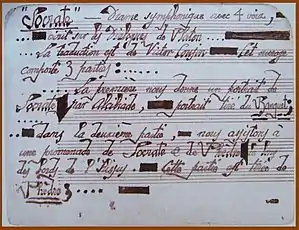 "Socrate" — Drame symphonique avec 4 voix,
... écrit sur des Dialogues de Platon
La traduction est de Victor Cousin. Cet ouvrage
comporte 3 parties: ......
... La première nous donne un portrait de
Socrate par Alcibiade, portrait tiré du Banquet;
... dans la deuxième partie, nous assistons à
une promenade de Socrate & de Phèdre
des bords de l'Ilissus. Cette partie est tirée de
Phèdre;